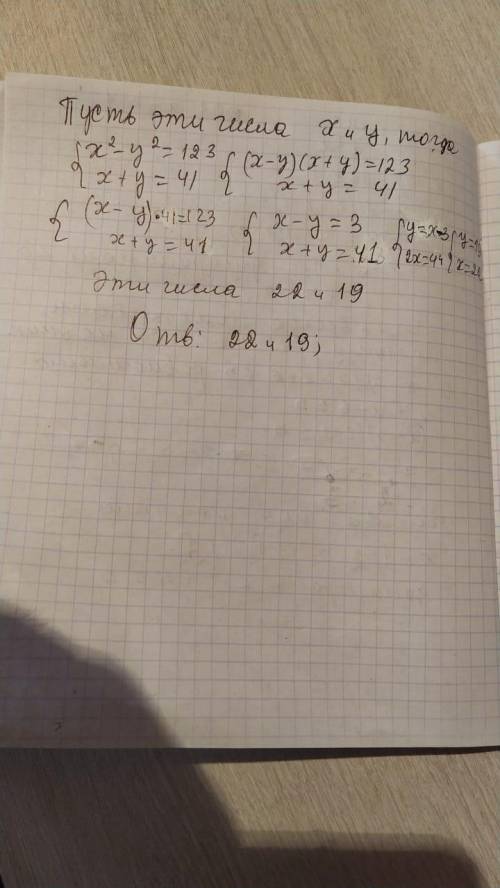 Пусть эти числа x и y, тогда
{x² - y² = 123 {(x - y)(x + y) = 123
x + y = 41 x + y = 41
{(x - y)·41 = 123 {x - y = 3 {y = x - 3 {y = 19
x + y = 41 x + y = 41 2x = 44 x = 22
Эти числа 22 и 19
Отв: 22 и 19;